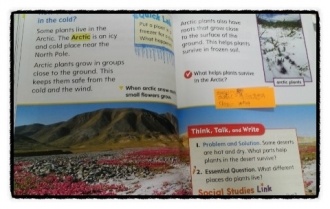 in the cold?
Some plants live in the
Arctic. The Arctic is an icy
and cold place near the
North Pole.
Arctic plants grow in groups
close to the ground. This
keeps them safe from the
cold and the wind.
Quick Lab
Put a plant
freezer for
What happens
When arctic snow
small flowers grow.
Arctic plants also have
roots that grow close
to the surface of the
ground. This helps plants
survive in frozen soil.
What helps plants survive
in the Arctic?
arctic plants
Think, Talk, and Write
1. Problem and Solution. Some deserts
are hot and dry. What parts help
plants in the desert survive?
2. Essential Question. What different
places do plants live?
Social Studies Link